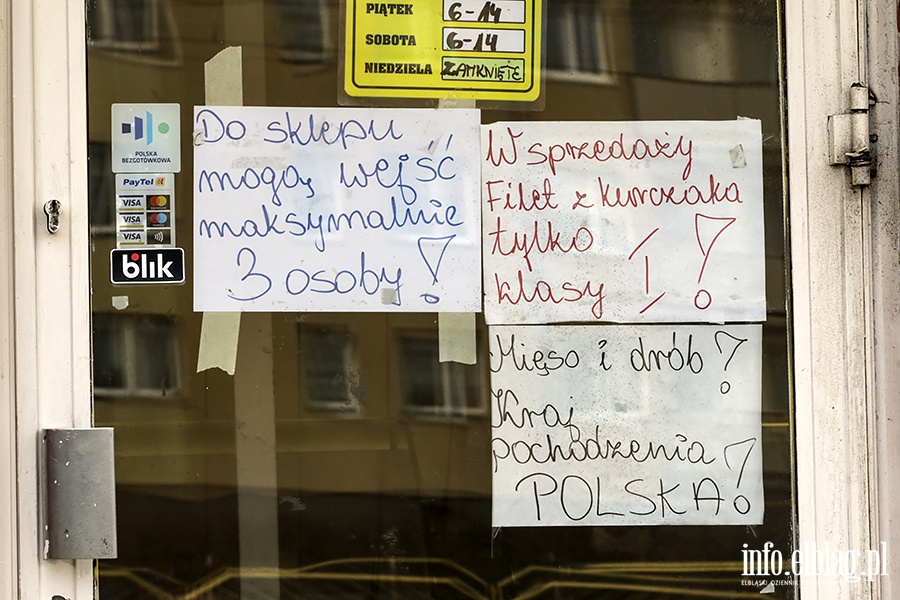 PIĄTEK 6-14
SOBOTA 6-14
NIEDZIELA ZAMKNIĘTE
POLSKA
BEZGOTÓWKOWA
PayTel
VISA
VISA
VISA
blik
Do sklepu
mogą wejść
maksymalnie
3 osoby!
W sprzedaży
Filet z kurczaka
tylko
klasy I!
Mięso i drób!
Kraj
pochodzenia
POLSKA!
info.elblag.pl
ELBLĄSKI DZIENNIK